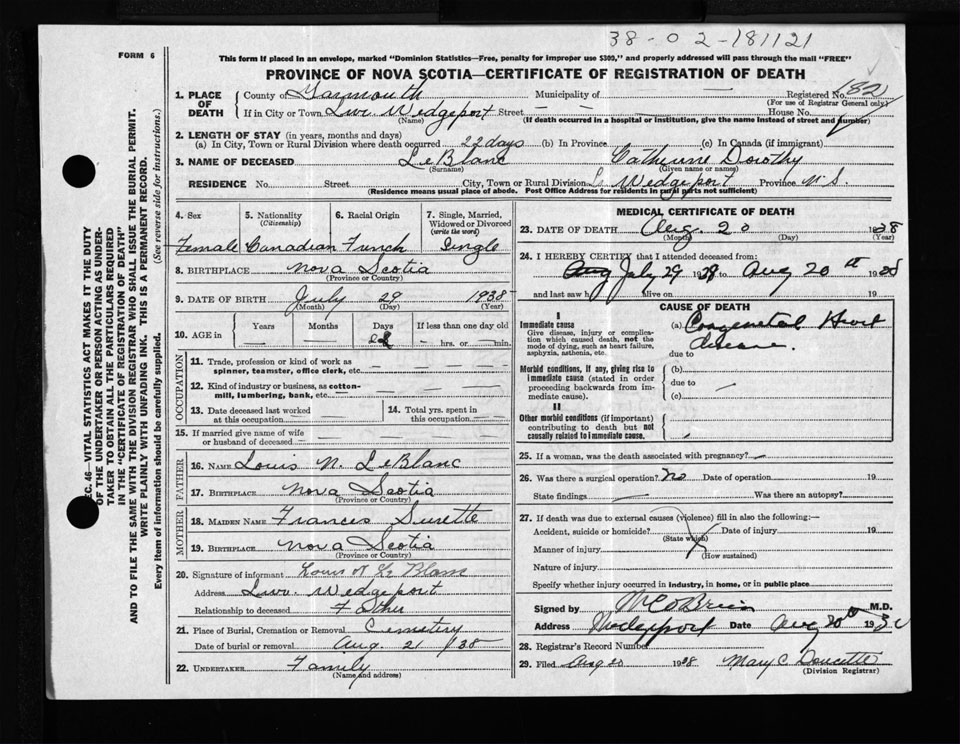 38-02-181121
FORM 6
This form if placed in an envelope, marked "Dominion Statistics—Free, penalty for improper use $300," and properly addressed will pass through the mail "FREE"
PROVINCE OF NOVA SCOTIA—CERTIFICATE OF REGISTRATION OF DEATH
1. PLACE OF DEATH
County of Yarmouth Municipality of — Registered No. 182
(For use of Registrar General only)
If in City or Town Lwr. Wedgeport Street — — House No.
(Name) (If death occurred in a hospital or institution, give the name instead of street and number)
2. LENGTH OF STAY (in years, months and days)
(a) In City, Town or Rural Division where death occurred 22 days (b) In Province (c) In Canada (if immigrant)
3. NAME OF DECEASED LeBlanc Catherine Dorothy
(Surname) (Given name or names)
RESIDENCE No. Street City, Town or Rural Division Lr Wedgeport Province N.S.
(Residence means usual place of abode. Post Office Address for residents in rural parts not sufficient)
4. Sex 5. Nationality (Citizenship) 6. Racial Origin 7. Single, Married, Widowed or Divorced (write the word)
Female Canadian French Single
8. BIRTHPLACE Nova Scotia
(Province or Country)
9. DATE OF BIRTH July 29 1938
(Month) (Day) (Year)
10. AGE in Years Months Days If less than one day old
— hrs. or — min.
OCCUPATION
11. Trade, profession or kind of work as spinner, teamster, office clerk, etc. — —
12. Kind of industry or business, as cotton-mill, lumbering, bank, etc. — —
13. Date deceased last worked at this occupation — —
14. Total yrs. spent in this occupation — —
15. If married give name of wife or husband of deceased — — —
FATHER
16. NAME Louis N. LeBlanc
17. BIRTHPLACE Nova Scotia
(Province or Country)
MOTHER
18. MAIDEN NAME Frances Surette
19. BIRTHPLACE Nova Scotia
(Province or Country)
20. Signature of informant Louis N Le Blanc
Address Lwr. Wedgeport
Relationship to deceased Father
21. Place of Burial, Cremation or Removal Cemetery
Date of burial or removal Aug. 21 /38
22. UNDERTAKER Family
(Name and address)
MEDICAL CERTIFICATE OF DEATH
23. DATE OF DEATH Aug. 20 1938
(Month) (Day) (Year)
24. I HEREBY CERTIFY that I attended deceased from:
Aug July 29 1938 to Aug 20th 1938
and last saw h alive on 19
CAUSE OF DEATH
I
Immediate cause
Give disease, injury or complication which caused death, not the mode of dying, such as heart failure, asphyxia, asthenia, etc.
(a) Congenital Heart disease.
due to
Morbid conditions, if any, giving rise to immediate cause (stated in order proceeding backwards from immediate cause).
(b)
due to —
(c)
II
Other morbid conditions (if important) contributing to death but not causally related to immediate cause.
25. If a woman, was the death associated with pregnancy? —
26. Was there a surgical operation? No Date of operation 19
State findings — Was there an autopsy?
27. If death was due to external causes (violence) fill in also the following:—
Accident, suicide or homicide? Date of injury 19
(State which)
Manner of injury
(How sustained)
Nature of injury
Specify whether injury occurred in industry, in home, or in public place
Signed by O'Brien M.D.
Address Wedgeport Date Aug 20th 193
28. Registrar's Record Number
29. Filed Aug 20 1938 Mary C Doucette
(Division Registrar)
SEC. 46—VITAL STATISTICS ACT MAKES IT THE DUTY
OF THE UNDERTAKER OR PERSON ACTING AS UNDER-
TAKER TO OBTAIN ALL THE PARTICULARS REQUIRED
IN THE "CERTIFICATE OF REGISTRATION OF DEATH"
AND TO FILE THE SAME WITH THE DIVISION REGISTRAR WHO SHALL ISSUE THE BURIAL PERMIT.
WRITE PLAINLY WITH UNFADING INK. THIS IS A PERMANENT RECORD.
Every item of information should be carefully supplied. (See reverse side for instructions.)